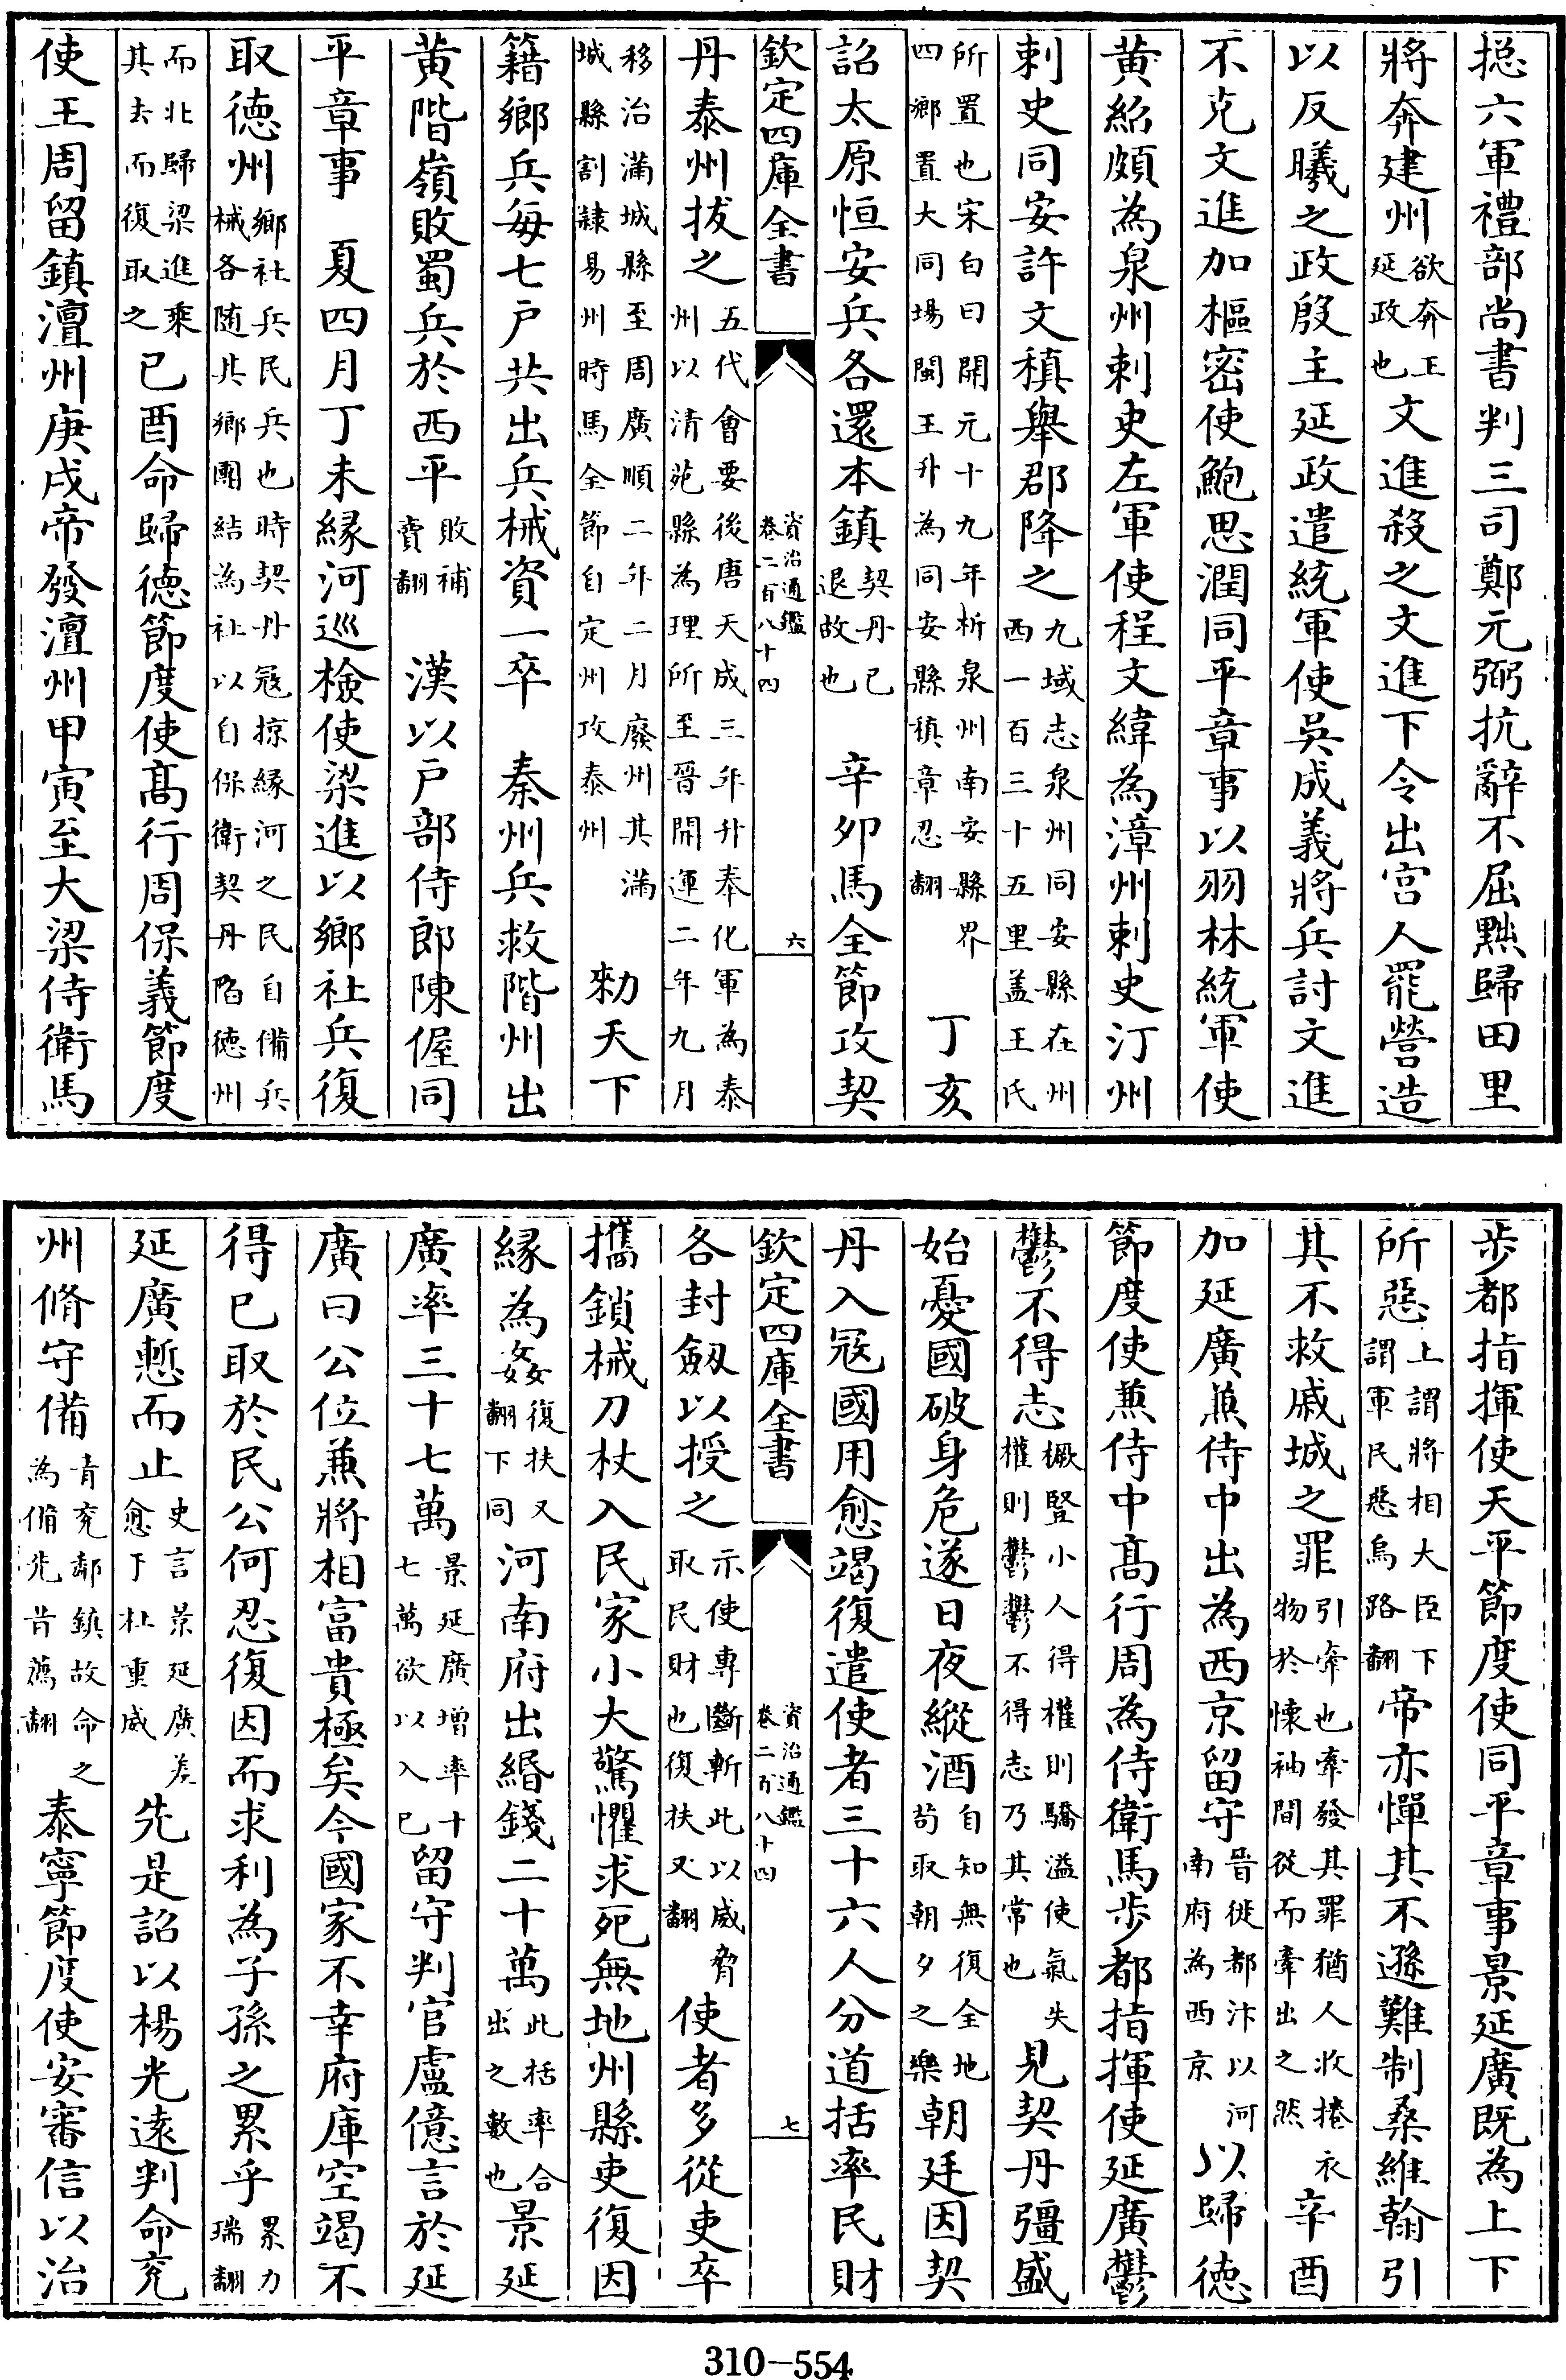 捴六軍禮部尚書判三司鄭元弼抗辭不屈黜歸田里
將奔建州欲奔王延政也文進殺之文進下令出宫人罷營造
以反曦之政殷主延政遣統軍使吳成義將兵討文進
不克文進加樞密使鮑思潤同平章事以羽林統軍使
黄紹頗為泉州刺史左軍使程文緯為漳州刺史汀州
刺史同安許文稹舉郡降之九域志泉州同安縣在州西一百三十五里盖王氏
所置也宋白曰開元十九年析泉州南安縣界四鄉置大同場閩王升為同安縣稹章忍翻丁亥
詔太原恒安兵各還本鎮契丹已退故也辛夘馬全節攻契
欽定四庫全書 資治通鑑卷二百八十四 六
丹泰州拔之五代會要後唐天成三年升奉化軍為泰州以清苑縣為理所至晉開運二年九月
移治滿城縣至周廣順二年二月廢州其滿城縣割隷易州時馬全節自定州攻泰州勑天下
籍鄉兵每七戶共出兵械資一卒 秦州兵救階州出
黄階嶺敗蜀兵於西平敗補賣翻 漢以戶部侍郎陳偓同
平章事 夏四月丁未緣河巡檢使梁進以鄉社兵復
取德州鄉社兵民兵也時契丹寇掠緣河之民自備兵械各随其鄉團結為社以自保衛契丹陷德州
而北歸梁進乘其去而復取之已酉命歸德節度使髙行周保義節度
使王周留鎮澶州庚戌帝發澶州甲寅至大梁侍衛馬
步都指揮使天平節度使同平章事景延廣既為上下
所惡上謂將相大臣下謂軍民惡烏路翻帝亦憚其不遜難制桑維翰引
其不救戚城之罪引牽也牽發其罪猶人收捲衣物於懐袖間從而牽出之然辛酉
加延廣兼侍中出為西京留守晉徙都汴以河南府為西京以歸德
節度使兼侍中髙行周為侍衛馬步都指揮使延廣鬱
鬱不得志橛豎小人得權則驕溢使氣失權則鬱鬱不得志乃其常也見契丹彊盛
始憂國破身危遂日夜縱酒自知無復全地苟取朝夕之樂朝廷因契
丹入冦國用愈竭復遣使者三十六人分道括率民財
欽定四庫全書 資治通鑑卷二百八十四 七
各封劔以授之示使專斷斬此以威脅取民財也復扶又翻使者多從吏卒
攜鎖械刀杖入民家小大驚懼求死無地州縣吏復因
緣為姦復扶又翻下同河南府出緡錢二十萬此括率合出之數也景延
廣率三十七萬景延廣增率十七萬欲以入已留守判官盧億言於延
廣曰公位兼將相富貴極矣今國家不幸府庫空竭不
得已取於民公何忍復因而求利為子孫之累乎累力瑞翻
延廣慙而止史言景延廣差愈于杜重威先是詔以楊光遠判命兖
州脩守備青兖鄰鎮故命之為備先昔薦翻泰寧節度使安審信以治
310-554